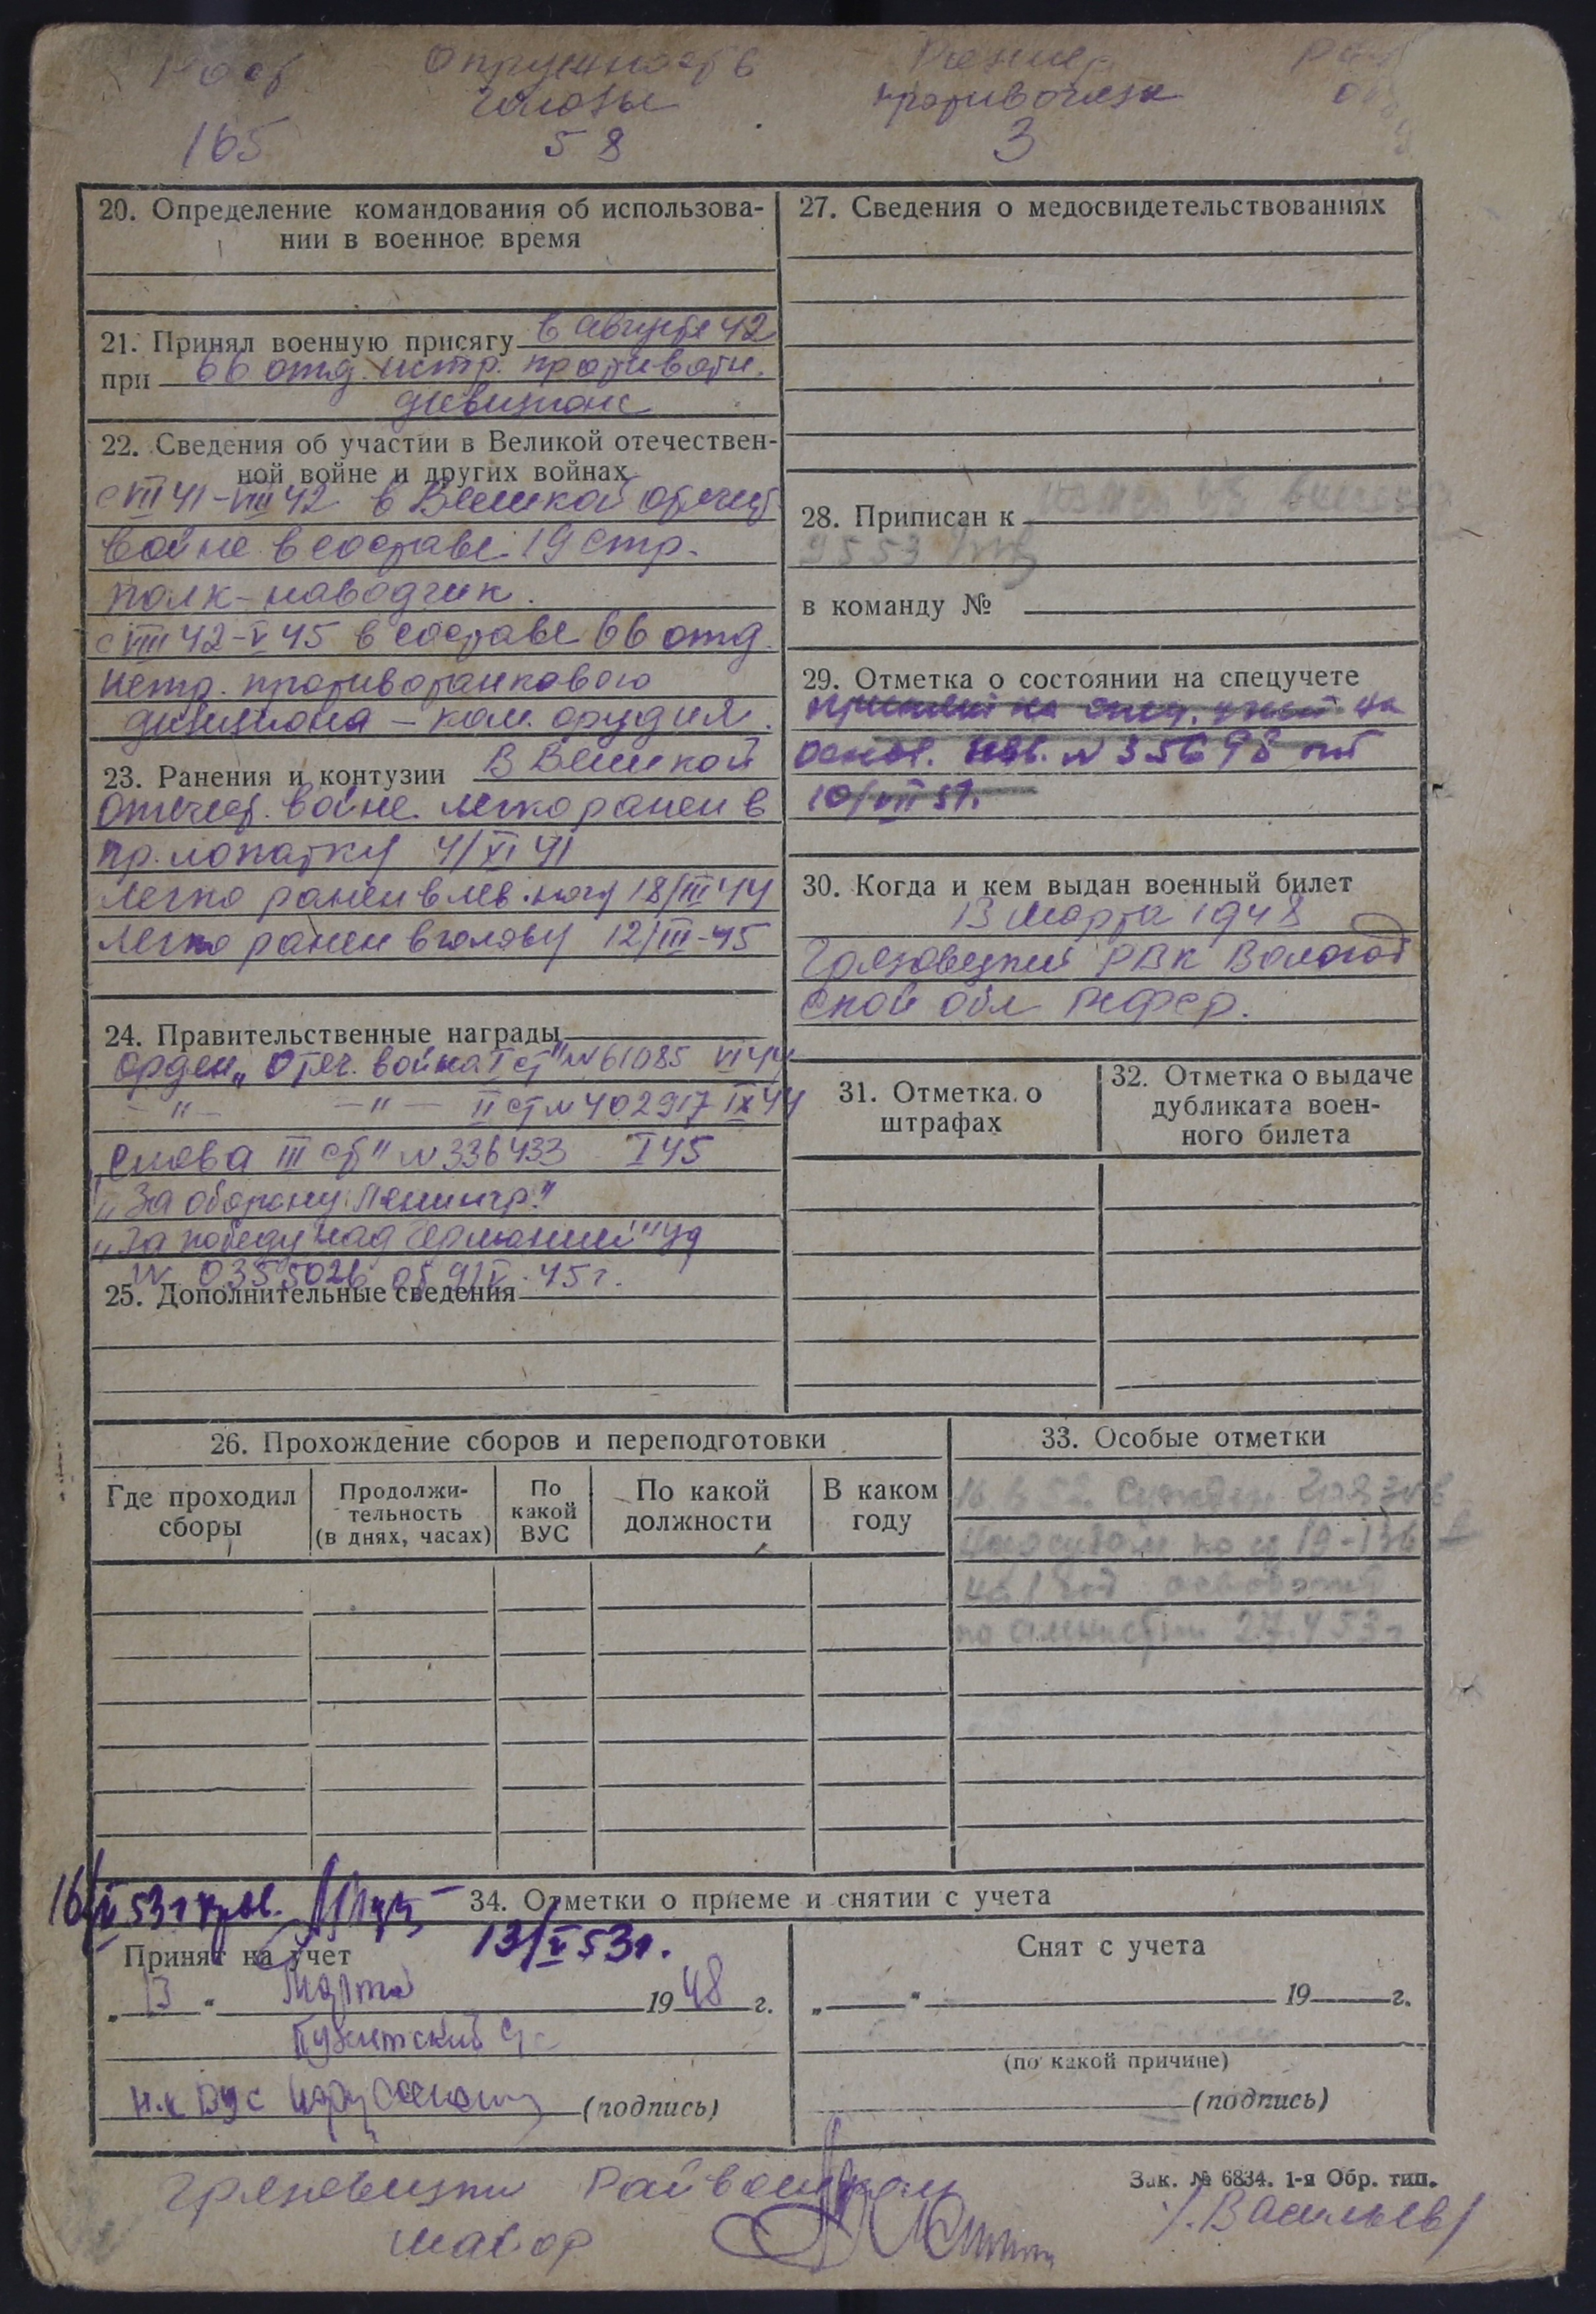 Рост Окружность Размер
головы противогаза
165 58 3
20. Определение командования об использова-
нии в военное время
21. Принял военную присягу в августе 42
при 66 отд. истр. противотн.
дивизионе
22. Сведения об участии в Великой отечествен-
ной войне и других войнах
с VII 41-VIII 42 в Великой отечест
войне в составе 19 стр.
полк-наводчик.
с VIII 42-V 45 в составе 66 отд.
истр. противотанкового
дивизиона - ком. орудия.
23. Ранения и контузии В Великой
отечест. войне легко ранен в
пр. лопатку 4/XI 41
Легко ранен в лев. ногу 18/III 44
Легко ранен в голову 12/III-45
24. Правительственные награды
орден „Отеч. война I ст" № 61085 VI 44
-"- -"- II ст № 402917 IX 44
„Слова III ст" № 336433 I 45
„За оборону Ленингр."
„За победу над Германией" уд
№ 0355026 от 9/V-45 г.
25. Дополнительные сведения
27. Сведения о медосвидетельствованиях
28. Приписан к
9553
в команду №
29. Отметка о состоянии на спецучете
на
основ. № 35698 от
10/VII 51.
30. Когда и кем выдан военный билет
13 марта 1948
Грязовецкий РВК Вологод
ской обл РСФСР.
31. Отметка о
штрафах
32. Отметка о выдаче
дубликата воен-
ного билета
26. Прохождение сборов и переподготовки
Где проходил
сборы
Продолжи-
тельность
(в днях, часах)
По
какой
ВУС
По какой
должности
В каком
году
33. Особые отметки
52 Грязов
нарсудом по 19-136
на 1 год
по амнистии 27.4 53г
16/V 53г
34. Отметки о приеме и снятии с учета
13/V 53г.
Принят на учет
„ 13 " Марта 1948 г.
н.к ВУС (подпись)
Снят с учета
„ " 19 г.
(по какой причине)
(подпись)
Грязовецкий Райвоенком
майор
Зак. № 6834. 1-я Обр. тип.
/Васильев/